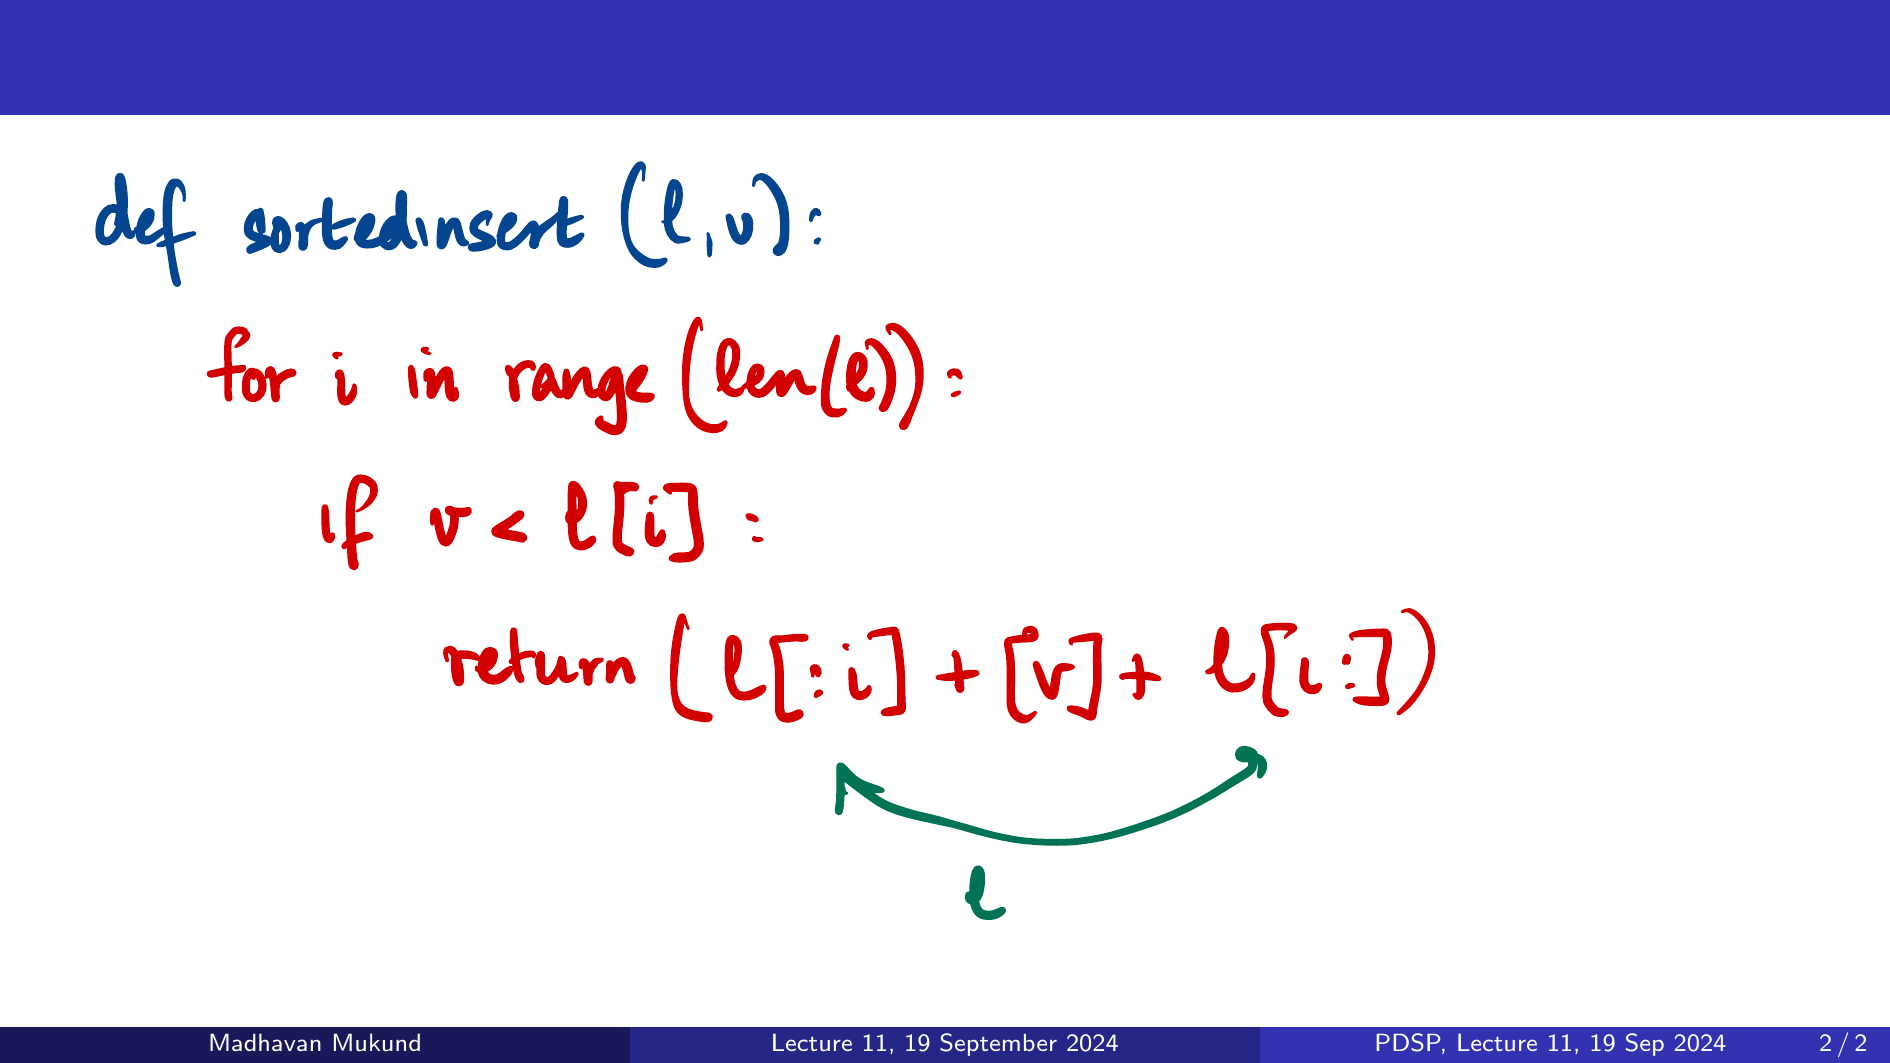 def sortedinsert (l,v):
for i in range (len(l)):
if v < l[i] :
return ( l[:i] + [v] + l[i:])
l
Madhavan Mukund Lecture 11, 19 September 2024 PDSP, Lecture 11, 19 Sep 2024 2 / 2